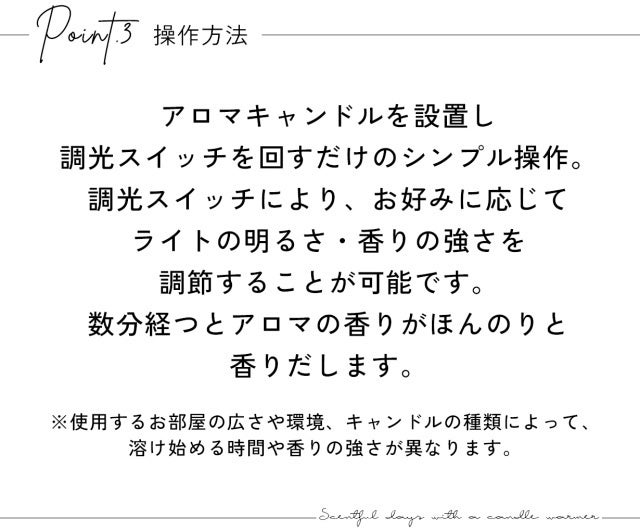 Point.3 操作方法
アロマキャンドルを設置し
調光スイッチを回すだけのシンプル操作。
調光スイッチにより、お好みに応じて
ライトの明るさ・香りの強さを
調節することが可能です。
数分経つとアロマの香りがほんのりと
香りだします。
※使用するお部屋の広さや環境、キャンドルの種類によって、
溶け始める時間や香りの強さが異なります。
Scentful days with a candle warmer